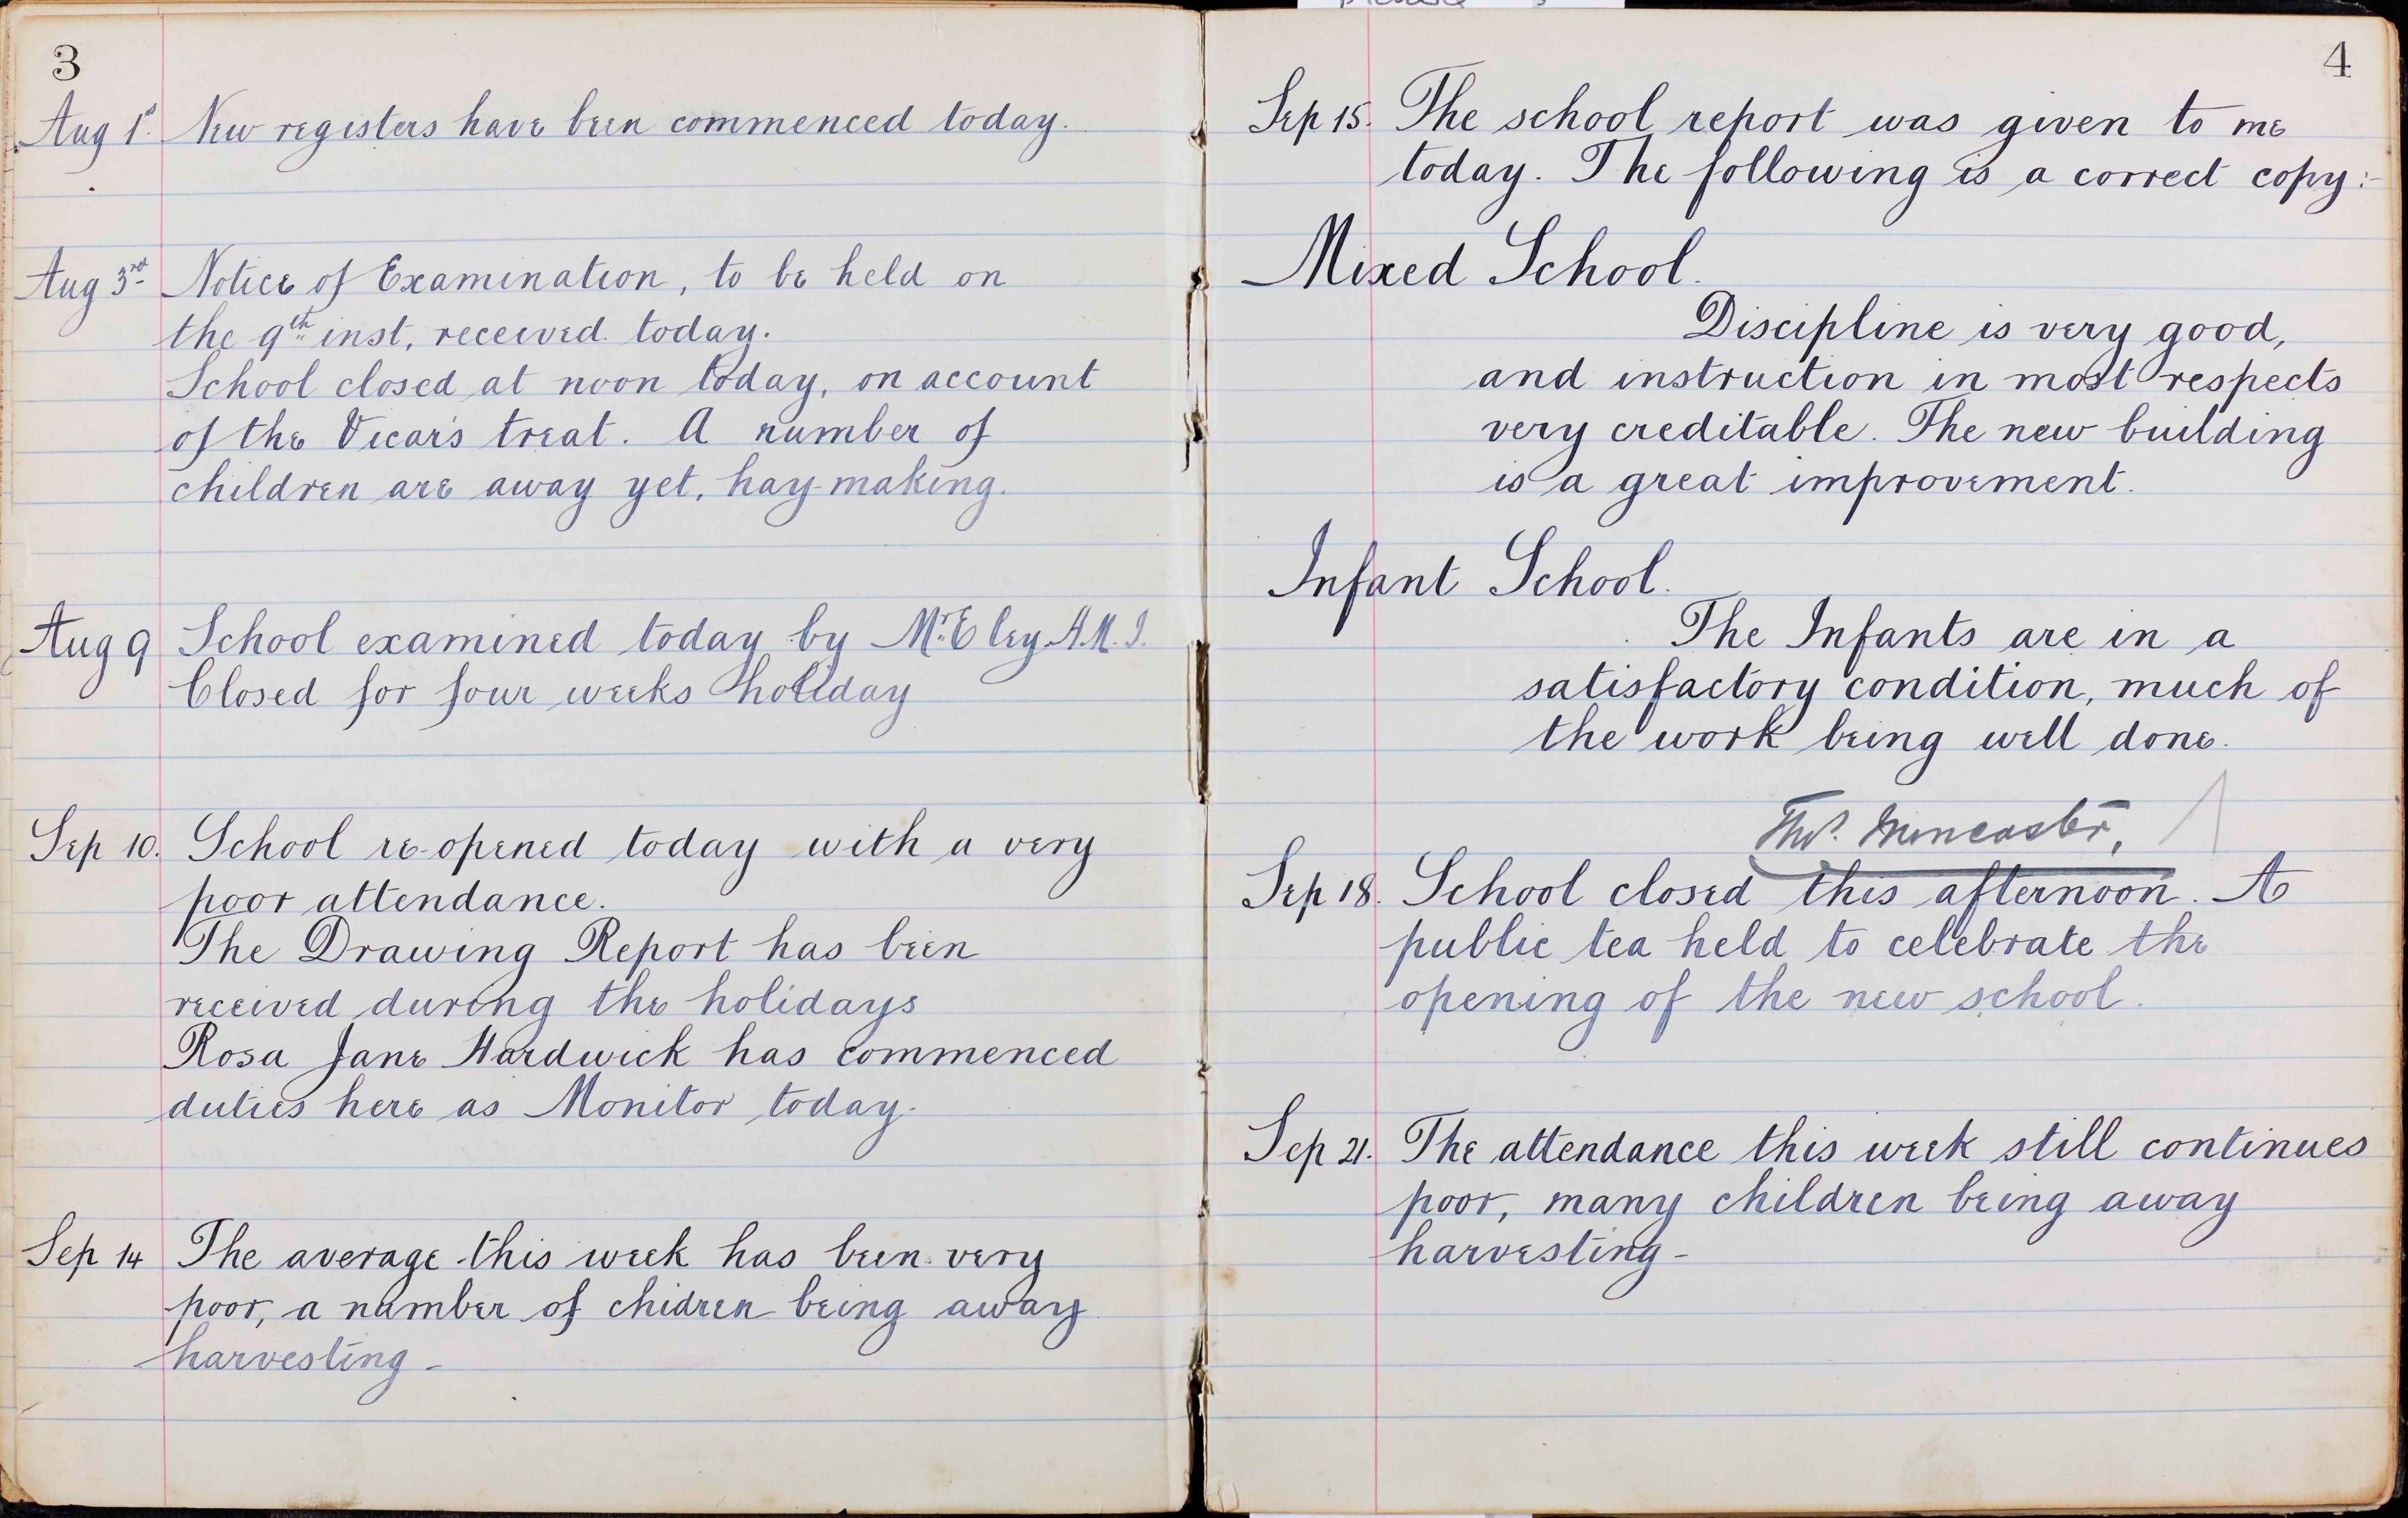 3
Aug 1st. New registers have been commenced today.
Aug 3rd Notice of Examination, to be held on
the 9th inst, received today.
School closed at noon today, on account
of the Vicar's treat. A number of
children are away yet, hay-making.
Aug 9 School examined today by Mr. Eley H.M.I.
Closed for four weeks holiday
Sep 10. School re-opened today with a very
poor attendance.
The Drawing Report has been
received during the holidays
Rosa Jane Hardwick has commenced
duties here as Monitor today.
Sep 14 The average this week has been very
poor, a number of chidren being away
harvesting -
4
Sep 15. The school report was given to me
today. The following is a correct copy:-
Mixed School.
Discipline is very good,
and instruction in most respects
very creditable. The new building
is a great improvement.
Infant School.
The Infants are in a
satisfactory condition, much of
the work being well done.
Thos. Muncaster,
Sep 18. School closed this afternoon. A
public tea held to celebrate the
opening of the new school.
Sep 21. The attendance this week still continues
poor, many children being away
harvesting -